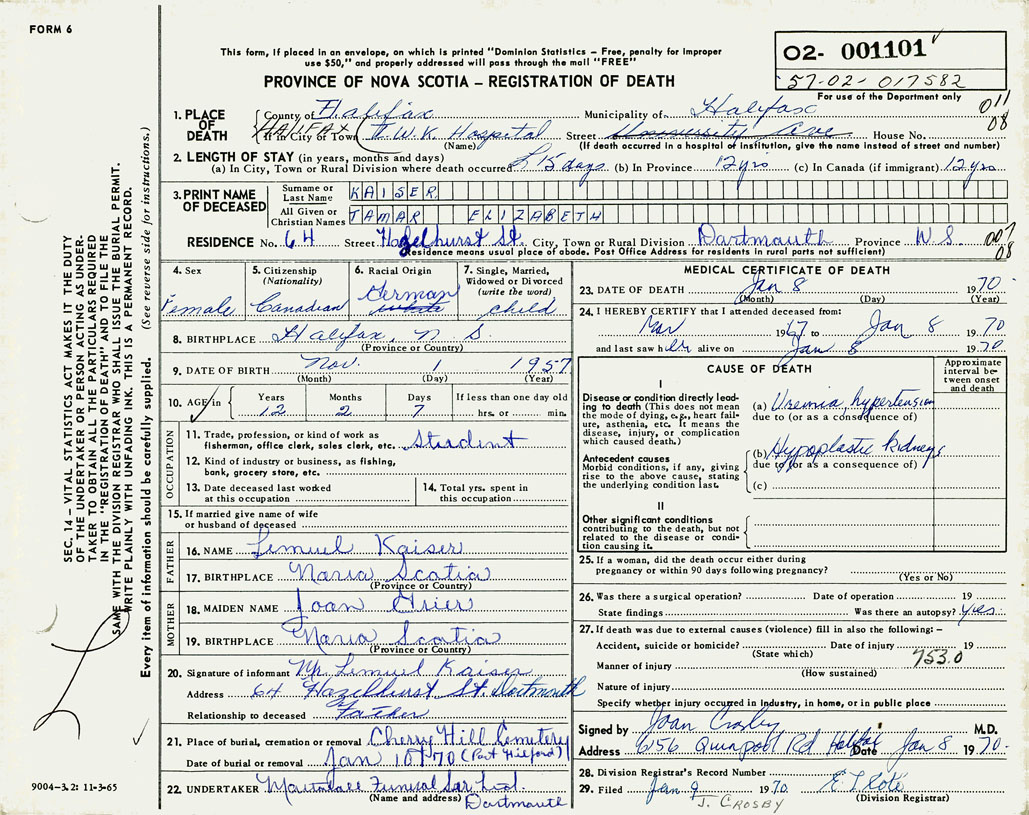 FORM 6
This form, if placed in an envelope, on which is printed "Dominion Statistics – Free, penalty for improper
use $50," and properly addressed will pass through the mail "FREE"
PROVINCE OF NOVA SCOTIA – REGISTRATION OF DEATH
O2- 001101
57-02-017582
For use of the Department only
1. PLACE OF DEATH
County of Halifax Municipality of Halifax 011
If in City of Town HALIFAX I.W.K. Hospital Street University Ave House No. 08
(Name) (If death occurred in a hospital or institution, give the name instead of street and number)
2. LENGTH OF STAY (in years, months and days)
(a) In City, Town or Rural Division where death occurred 15 days (b) In Province 12 yrs (c) In Canada (if immigrant) 12 yrs
3. PRINT NAME OF DECEASED
Surname or Last Name KAISER
All Given or Christian Names TAMAR ELIZABETH
RESIDENCE No. 64 Street Hazelhurst St. City, Town or Rural Division Dartmouth Province N.S. 007 08
Residence means usual place of abode. Post Office Address for residents in rural parts not sufficient)
4. Sex
Female
5. Citizenship
(Nationality)
Canadian
6. Racial Origin
German
white
7. Single, Married,
Widowed or Divorced
(write the word)
child
8. BIRTHPLACE Halifax, N S
(Province or Country)
9. DATE OF BIRTH Nov. 1 1957
(Month) (Day) (Year)
10. AGE in Years Months Days If less than one day old
12 2 7 hrs. or min.
OCCUPATION
11. Trade, profession, or kind of work as
fishermon, office clerk, sales clerk, etc. Student
12. Kind of industry or business, as fishing,
bank, grocery store, etc.
13. Date deceased last worked
at this occupation
14. Total yrs. spent in
this occupation
15. If married give name of wife
or husband of deceased
FATHER
16. NAME Lemuel Kaiser
17. BIRTHPLACE Nova Scotia
(Province or Country)
MOTHER
18. MAIDEN NAME Joan Grier
19. BIRTHPLACE Nova Scotia
(Province or Country)
20. Signature of informant Mr. Lemuel Kaiser
Address 64 Hazelhurst St. Dartmouth
Relationship to deceased Father
21. Place of burial, cremation or removal Cherry Hill Cemetery
Date of burial or removal Jan 10 1970
22. UNDERTAKER Funeral Ltd.
(Name and address) Dartmouth
MEDICAL CERTIFICATE OF DEATH
23. DATE OF DEATH Jan 8 1970
(Month) (Day) (Year)
24. I HEREBY CERTIFY that I attended deceased from:
Mar 1967 to Jan 8 1970
and last saw her alive on Jan 8 1970
CAUSE OF DEATH
Approximate
interval be-
tween onset
and death
I
Disease or condition directly lead-
ing to death (This does not mean
the mode of dying, e.g., heart fail-
ure, asthenia, etc. It means the
disease, injury, or complication
which caused death.)
(a) Uremia, hypertension
due to (or as a consequence of)
Antecedent causes
Morbid conditions, if any, giving
rise to the above cause, stating
the underlying condition last.
(b) Hypoplastic kidneys
due to (or as a consequence of)
(c)
II
Other significant conditions
contributing to the death, but not
related to the disease or condi-
tion causing it.
25. If a woman, did the death occur either during
pregnancy or within 90 days following pregnancy?
(Yes or No)
26. Was there a surgical operation? Date of operation 19
State findings Was there an autopsy? Yes
27. If death was due to external causes (violence) fill in also the following: –
Accident, suicide or homicide? Date of injury 19
(State which) 753.0
Manner of injury
(How sustained)
Nature of injury
Specify whether injury occurred in Industry, in home, or in public place
Signed by Joan Crosby M.D.
Address 6156 Quinpool Rd Halifax Date Jan 8 1970
28. Division Registrar's Record Number
29. Filed Jan 9 1970
J. CROSBY (Division Registrar)
SEC. 14 – VITAL STATISTICS ACT MAKES IT THE DUTY
OF THE UNDERTAKER OR PERSON ACTING AS UNDER-
TAKER TO OBTAIN ALL THE PARTICULARS REQUIRED
IN THE "REGISTRATION OF DEATH" AND TO FILE THE
SAME WITH THE DIVISION REGISTRAR WHO SHALL ISSUE THE BURIAL PERMIT.
WRITE PLAINLY WITH UNFADING INK. THIS IS A PERMANENT RECORD.
Every item of information should be carefully supplied. (See reverse side for instructions.)
9004-3.2: 11-3-65